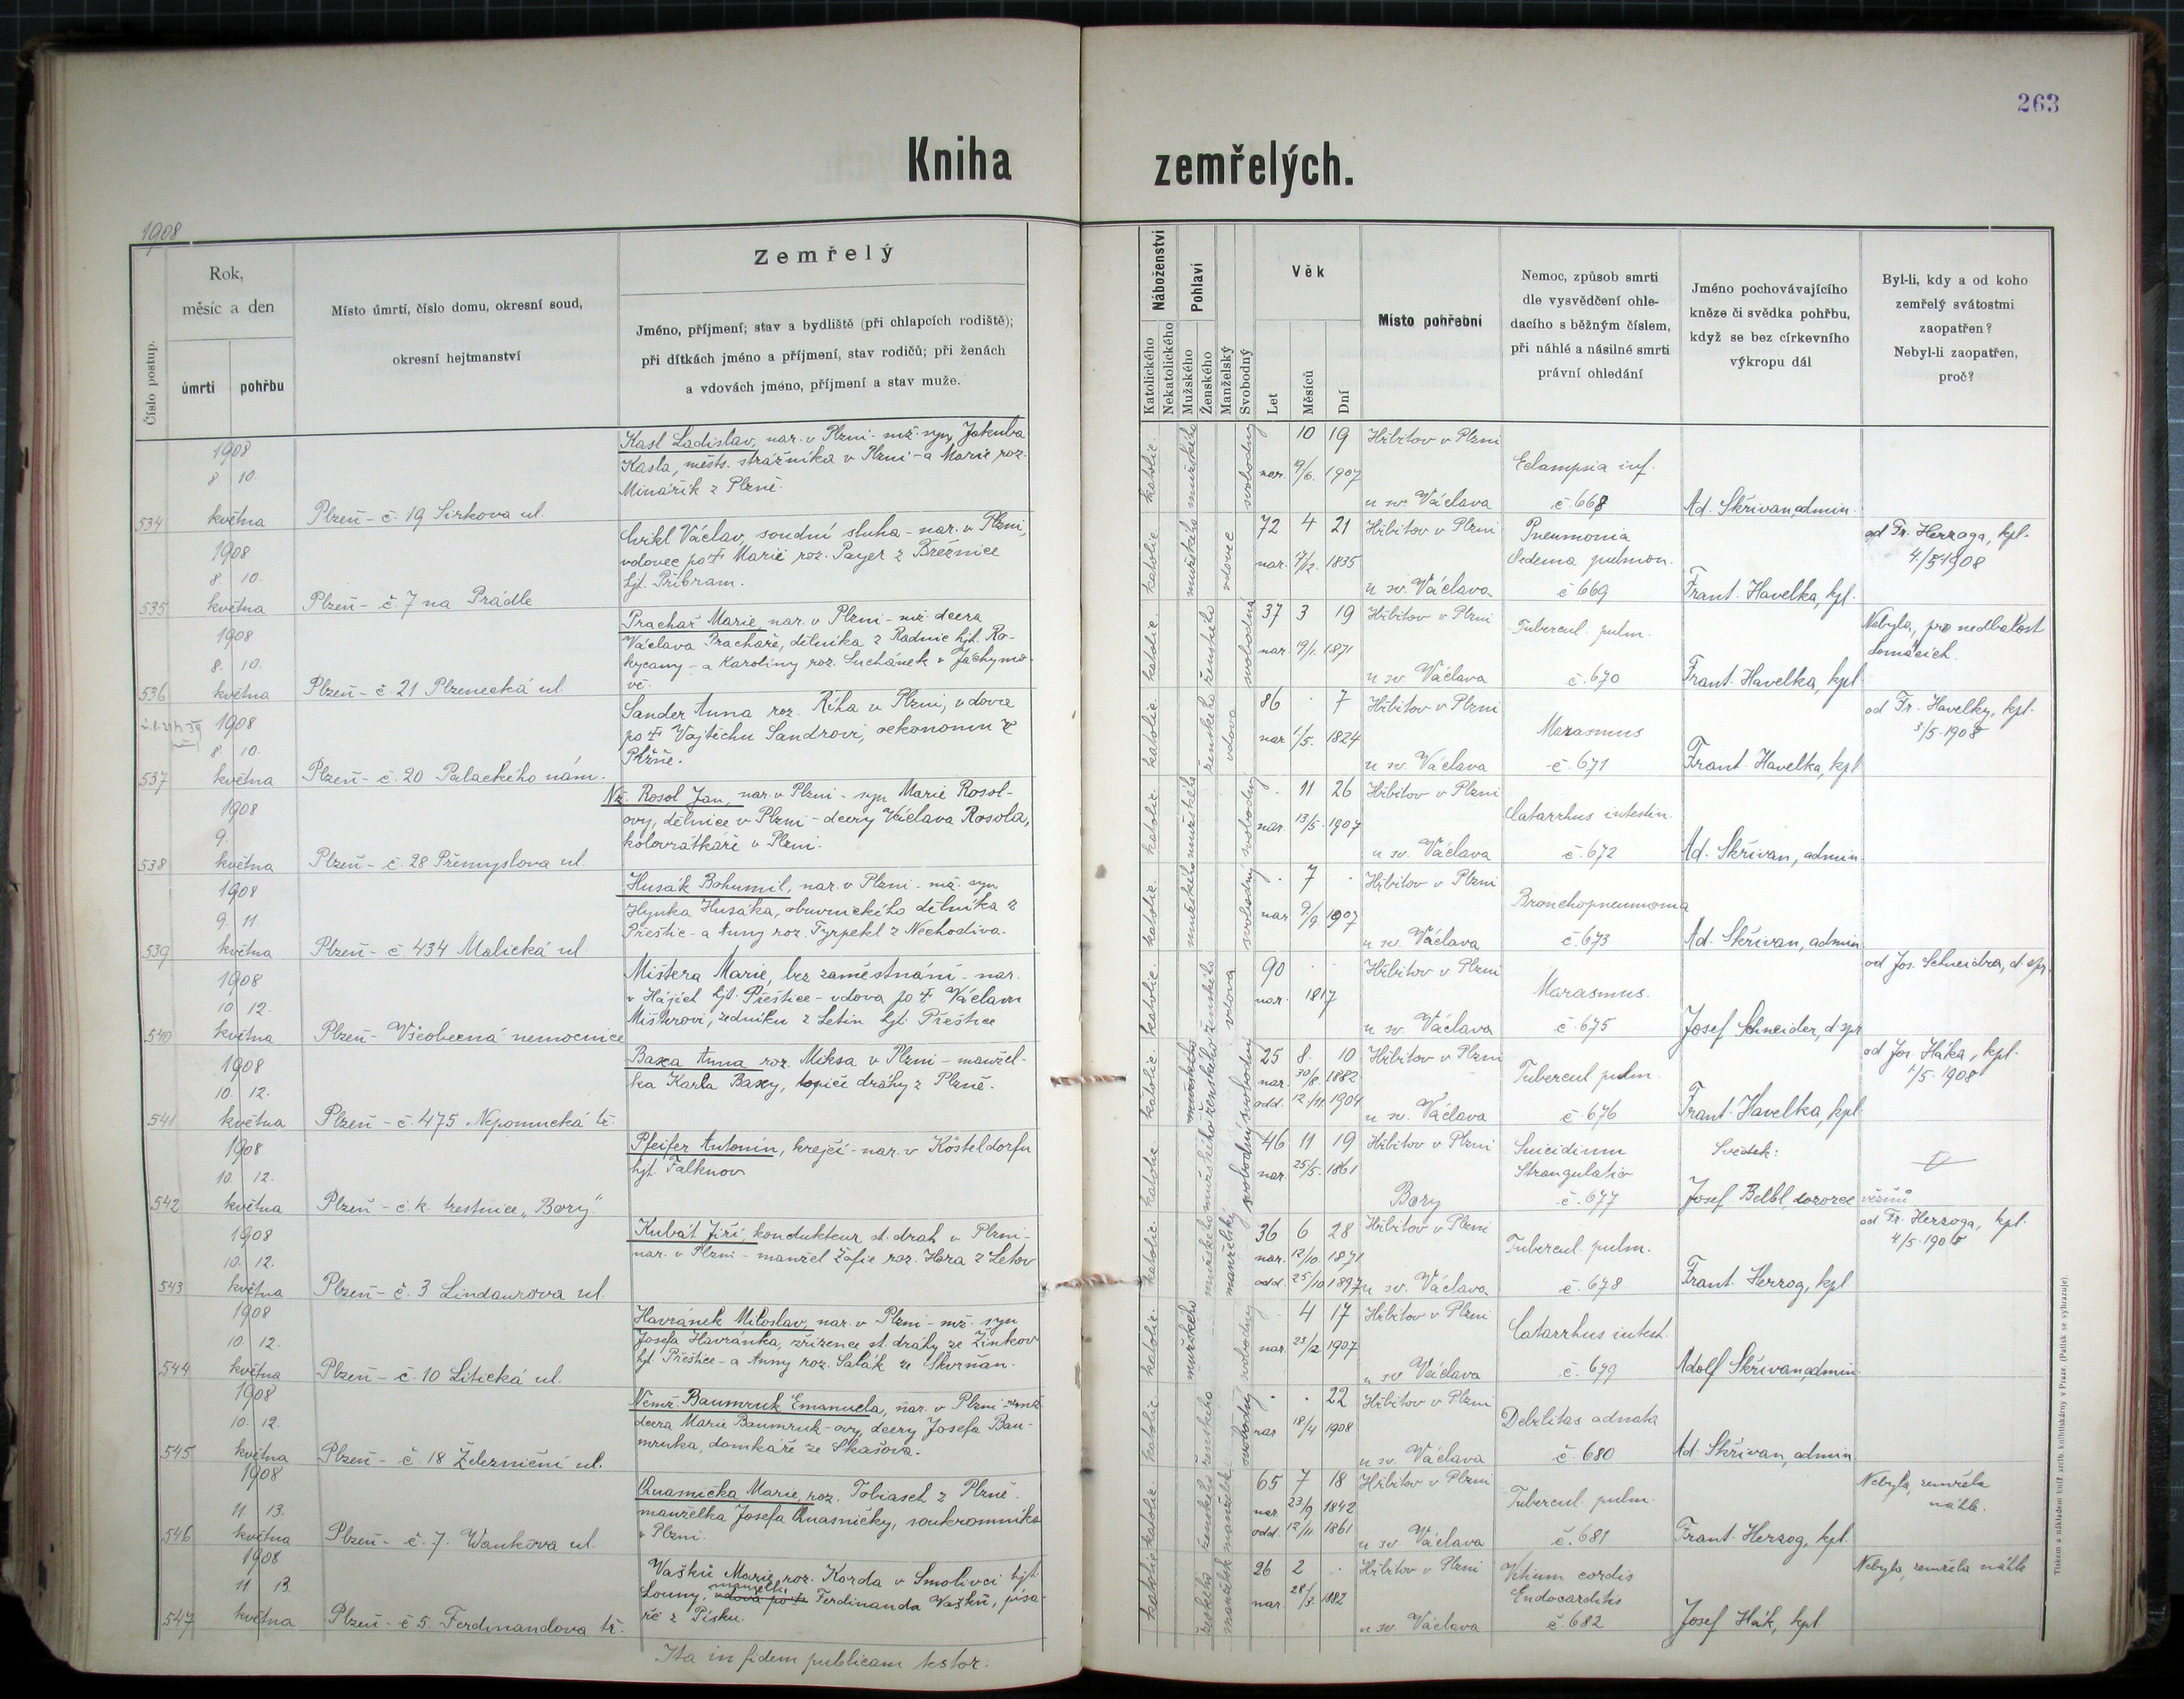 263
Kniha zemřelých.
1908
Číslo postup.
Rok,
měsíc a den
úmrtí
pohřbu
Místo úmrtí, číslo domu, okresní soud,
okresní hejtmanství
Zemřelý
Jméno, příjmení; stav a bydliště (při chlapcích rodiště);
při dítkách jméno a příjmení, stav rodičů; při ženách
a vdovách jméno, příjmení a stav muže.
Náboženství
Katolického
Nekatolického
Pohlaví
Mužského
Ženského
Manželský
Svobodný
Věk
Let
Měsíců
Dní
Místo pohřební
Nemoc, způsob smrti
dle vysvědčení ohle-
dacího s běžným číslem,
při náhlé a násilné smrti
právní ohledání
Jméno pochovávajícího
kněze či svědka pohřbu,
když se bez církevního
výkropu dál
Byl-li, kdy a od koho
zemřelý svátostmi
zaopatřen?
Nebyl-li zaopatřen,
proč?
534
1908
8 10.
května
Plzeň - č. 19 Sirkova ul.
Kasl Ladislav, nar. v Plzni - mž. syn Jakuba
Kasla, městs. strážníka v Plzni - a Marie roz.
Minářik z Plzně.
katolic.
mužského
svobodný
10 19
nar. 19/6. 1907
Hřbitov v Plzni
u sv. Václava
Eclampsia inf.
č. 668
Ad. Skřivan, admin.
535
1908
8. 10.
května
Plzeň - č. 7 na Prádle
Cvikl Václav, soudní sluha - nar. v Plzni,
vdovec po † Marii roz. Payer z Březnice
hjt. Příbram.
katolic.
mužského
vdovec
72 4 21
nar. 17/12. 1835
Hřbitov v Plzni
u sv. Václava
Pneumonia
Oedema pulmon.
č 669
Frant. Havelka, kpl.
od Fr. Herzoga, kpl.
4/5 1908
536
1908
8. 10.
května
Plzeň - č. 21 Plzenecká ul.
Prachař Marie, nar. v Plzni - mž. dcera
Václava Prachaře, dělníka z Radnic hjt. Ro-
kycany - a Karoliny roz. Suchánek v Jáchymo-
vě.
katolic.
ženského
svobodná
37 3 19
nar. 19/1. 1871
Hřbitov v Plzni
u sv. Václava
Tubercul. pulm.
č. 670
Frant. Havelka, kpl
Nebyla, pro nedbalost
domácích.
537
1908
8 10.
května
Plzeň - č. 20 Palackého nám.
Sander Anna roz. Říha v Plzni, vdova
po † Vojtěchu Sandrovi, oekonomu z
Plzně.
katolic.
ženského
vdova
86 . 7
nar 1/5. 1824
Hřbitov v Plzni
u sv. Václava
Marasmus
č. 671
Frant. Havelka, kpl
od Fr. Havelky, kpl.
3/5. 1908
538
1908
9.
května
Plzeň - č. 28 Přemyslova ul.
Nž. Rosol Jan, nar. v Plzni - syn Marie Rosol-
ovy, dělnice v Plzni - dcery Václava Rosola,
kolovrátkáře v Plzni.
katolic.
mužského
svobodný
. 11 26
nar. 13/5. 1907
Hřbitov v Plzni
u sv. Václava
Catarrhus intestin.
č. 672
Ad. Skřivan, admin.
539
1908
9. 11.
května
Plzeň - č 434 Malická ul
Husák Bohumil, nar. v Plzni - mž. syn
Hynka Husáka, obuvnického dělníka z
Přeštic - a Anny roz. Tyrpekl z Nechodiva.
katolic.
mužského
svobodný
. 7 .
nar 9/9. 1907
Hřbitov v Plzni
u sv. Václava
Bronchopneumonia
č. 673
Ad. Skřivan, admin
540
1908
10. 12.
května
Plzeň - Všeobecná nemocnice
Mištera Marie, bez zaměstnání - nar.
v Hájích hjt. Přeštice - vdova po † Václavu
Mišterovi, zedníku z Letin hjt. Přeštice
katolic.
ženského
vdova
90 . .
nar. 1817
Hřbitov v Plzni
u sv. Václava
Marasmus.
č. 675
Josef Schneider, d. spr
od Jos. Schneidra, d. spr.
541
1908
10. 12.
května
Plzeň - č. 475 Nepomucká tř.
Baxa Anna roz. Miksa v Plzni - manžel-
ka Karla Baxy, topiče dráhy z Plzně.
katolic
mužského
ženského
svobodný
25 8. 10
nar. 30/8. 1882
odd. 12./11. 1904
Hřbitov v Plzni
u sv. Václava
Tubercul pulm.
č. 676
Frant. Havelka, kpl
od Jos. Háka, kpl.
1/5. 1908
542
1908
10. 12.
května
Plzeň - c. k. trestnice „Bory"
Pfeifer Antonín, krejčí - nar. v Kösteldorfu
hjt. Falknov
katolic
mužského
svobodný
46 11 19
nar. 25/5. 1861
Hřbitov v Plzni
Bory
Suicidium
Strangulatio
č. 677
Svědek:
Josef Belbl, dozorce vězňů
543
1908
10. 12.
května
Plzeň - č. 3 Lindaurova ul.
Kubát Jiří, kondukteur st. drah v Plzni -
nar. v Plzni - manžel Žofie roz. Hora z Letov
katolic.
mužského
manželský
36 6 28
nar. 12/10. 1871
odd. 25/10 1897
Hřbitov v Plzni
u sv. Václava
Tubercul. pulm.
č. 678
Frant. Herzog, kpl
od Fr. Herzoga, kpl.
4/5. 1908
544
1908
10. 12.
května
Plzeň - č. 10 Litická ul.
Havránek Miloslav, nar. v Plzni - mž. syn
Josefa Havránka, zřízence st. dráhy ze Žinkov
hjt. Přeštice - a Anny roz. Salák ze Skvrňan.
katolic.
mužského
svobodný
. 4 17
nar. 23/12 1907
Hřbitov v Plzni
u sv. Václava
Catarrhus intest.
č. 679
Adolf Skřivan, admin.
545
1908
10. 12
května
Plzeň - č. 18 Železniční ul.
Nemž. Baumruk Emanuela, nar. v Plzni - nemž
dcera Marie Baumruk-ovy, dcery Josefa Bau-
mruka, domkáře ze Skašova.
katolic
ženského
svobodný
. . 22
nar 18/4 1908
Hřbitov v Plzni
u sv. Václava
Debilitas adnata
č. 680
Ad. Skřivan, admin
546
1908
11 13.
května
Plzeň - č. 7. Wankova ul.
Quasnička Marie, roz. Tobiasch z Plzně -
manželka Josefa Quasničky, soukromníka
v Plzni.
katolic.
ženského
manželsk.
65 7 18
nar 23/9 1842
odd. 12/11 1861
Hřbitov v Plzni
u sv. Václava
Tubercul. pulm.
č. 681
Frant. Herzog, kpl.
Nebyla, zemřela
náhle.
547
1908
11 13
května
Plzeň - č 5. Ferdinandova tř.
Vašků Marie roz. Korda v Smolivci hjt
Louny, vdova po † manželka Ferdinanda Vašků, písa-
ře z Písku.
katolic
ženského
manželsk
26 2 .
nar. 28/2. 1882
Hřbitov v Plzni
u sv. Václava
Vitium cordis
Endocarditis
č. 682
Josef Hák, kpl
Nebyla, zemřela náhle
Ita in fidem publicam testor:
Tiskem a nákladem kníž. arcib. knihtiskárny v Praze. (Patisk se vyhrazuje).